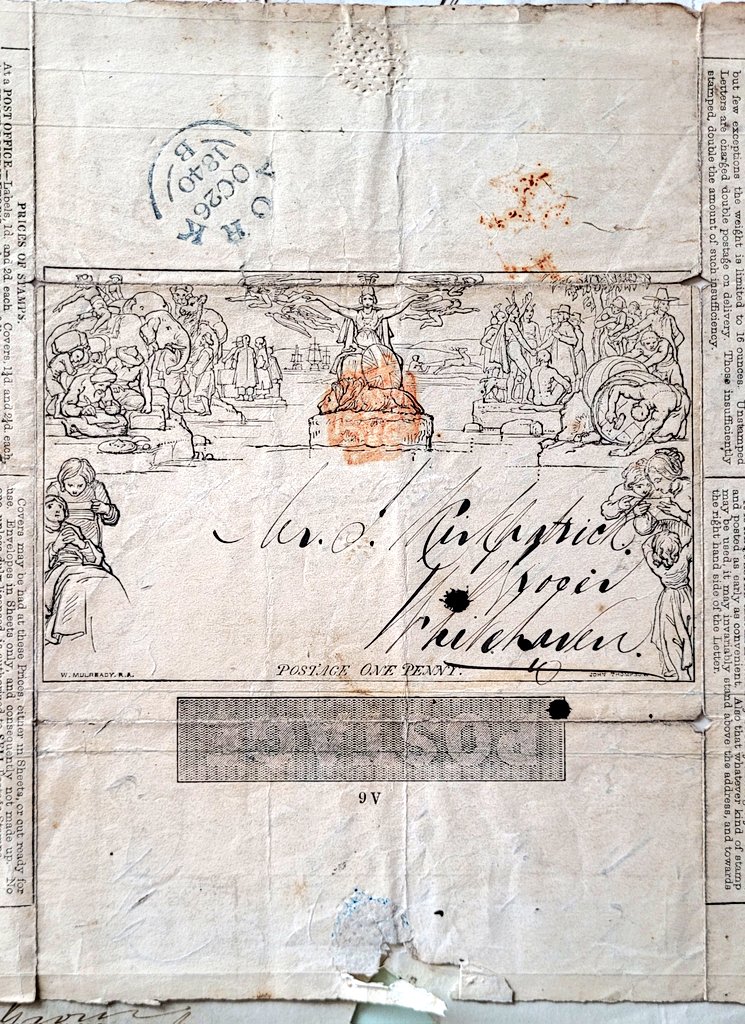 YORK
OC26
1840
B
PRICES OF STAMPS.
At a POST OFFICE.—Labels, 1d. and 2d. each. Covers, 1¼d. and 2¼d. each.
Covers may be had at these Prices, either in Sheets, or cut ready for
use. Envelopes in Sheets only, and consequently not made up. No
but few exceptions the weight is limited to 16 ounces. Unstamped
Letters are charged double postage on delivery. Those insufficiently
stamped, double the amount of such insufficiency.
and posted as early as convenient. Also that whatever kind of stamp
may be used, it may invariably stand above the address, and towards
the right hand side of the Letter.
Mr. J. Kirkpatrick
Whitehaven.
POSTAGE ONE PENNY.
W. MULREADY. R.A.
JOHN THOMPSON
POSTAGE
9 V